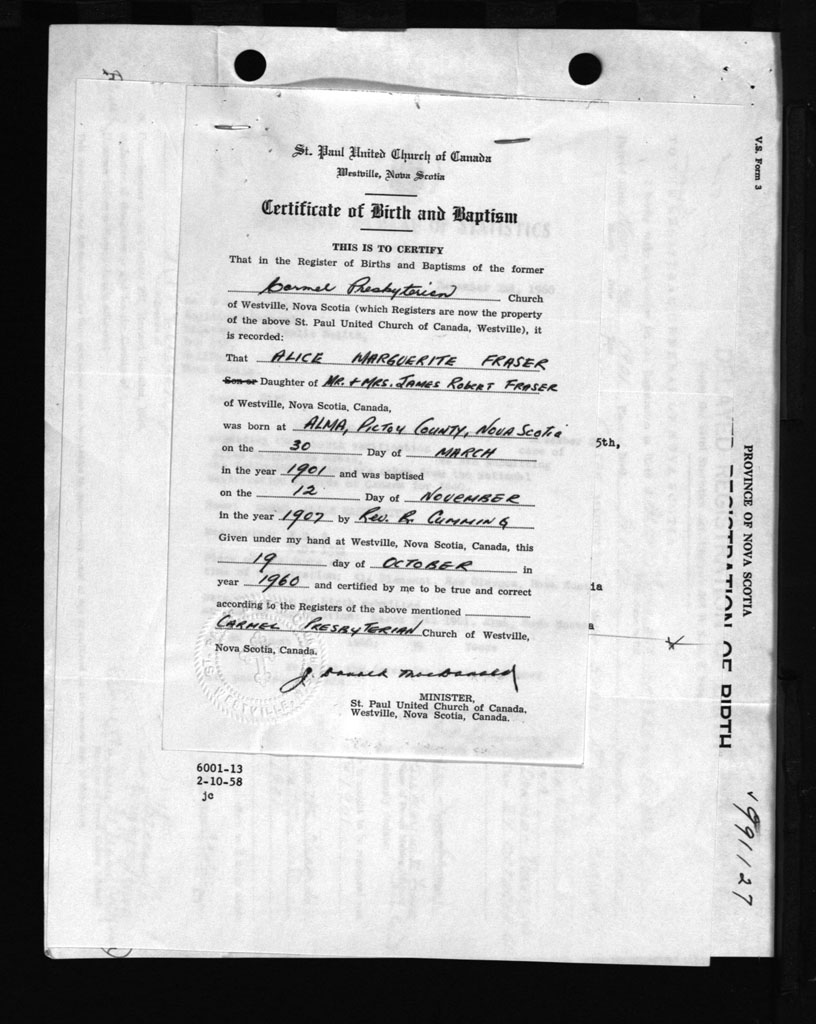 St. Paul United Church of Canada
Westville, Nova Scotia
Certificate of Birth and Baptism
THIS IS TO CERTIFY
That in the Register of Births and Baptisms of the former
Carmel Presbyterian Church
of Westville, Nova Scotia (which Registers are now the property
of the above St. Paul United Church of Canada, Westville), it
is recorded:
That ALICE MARGUERITE FRASER
Son or Daughter of MR. + MRS. JAMES ROBERT FRASER
of Westville, Nova Scotia, Canada,
was born at ALMA, PICTOU COUNTY, NOVA SCOTIA
on the 30 Day of MARCH
in the year 1901 and was baptised
on the 12 Day of NOVEMBER
in the year 1907 by REV. R. CUMMING
Given under my hand at Westville, Nova Scotia, Canada, this
19 day of OCTOBER in
year 1960 and certified by me to be true and correct
according to the Registers of the above mentioned
CARMEL PRESBYTERIAN Church of Westville,
Nova Scotia, Canada.
J. Donald MacDonald
MINISTER,
St. Paul United Church of Canada,
Westville, Nova Scotia, Canada.
5th,
ia
a
6001-13
2-10-58
jc
V.S. Form 3
PROVINCE OF NOVA SCOTIA
REGISTRATION OF BIRTH
991127